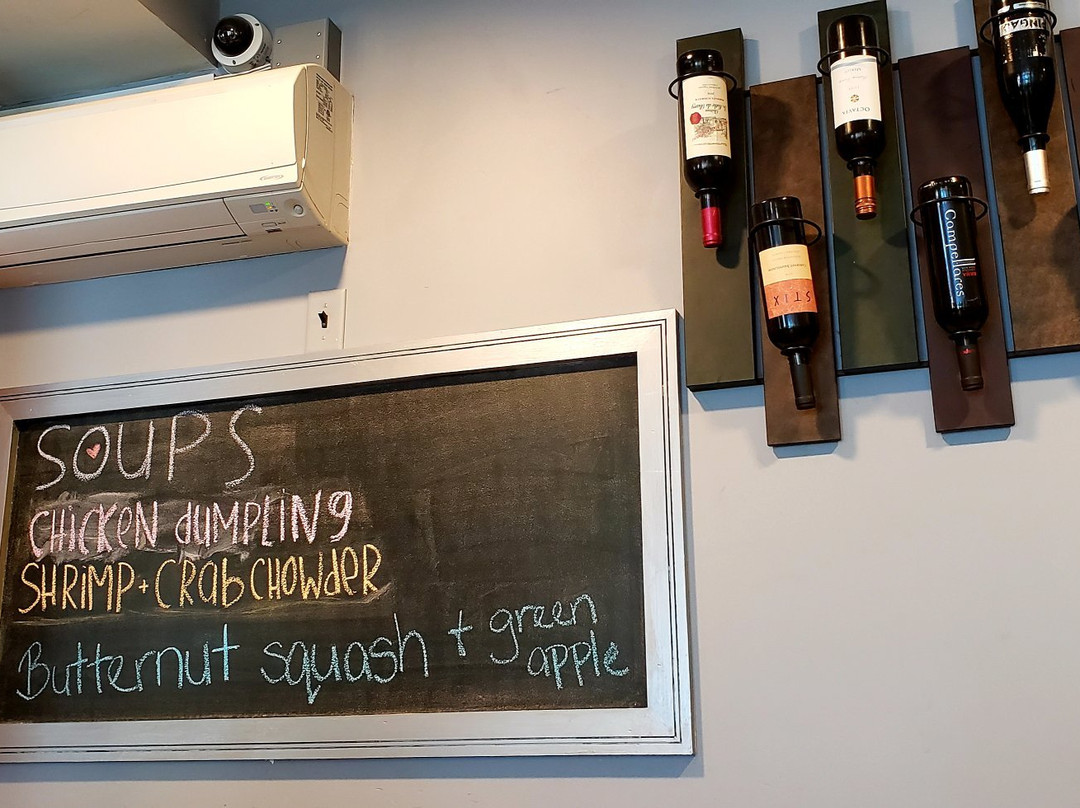 SOUPS
CHICKEN dUMPLING
SHRIMP + CRab CHOWdER
Butternut squash + green
apple
OCTAVIA
STIX
Campellares